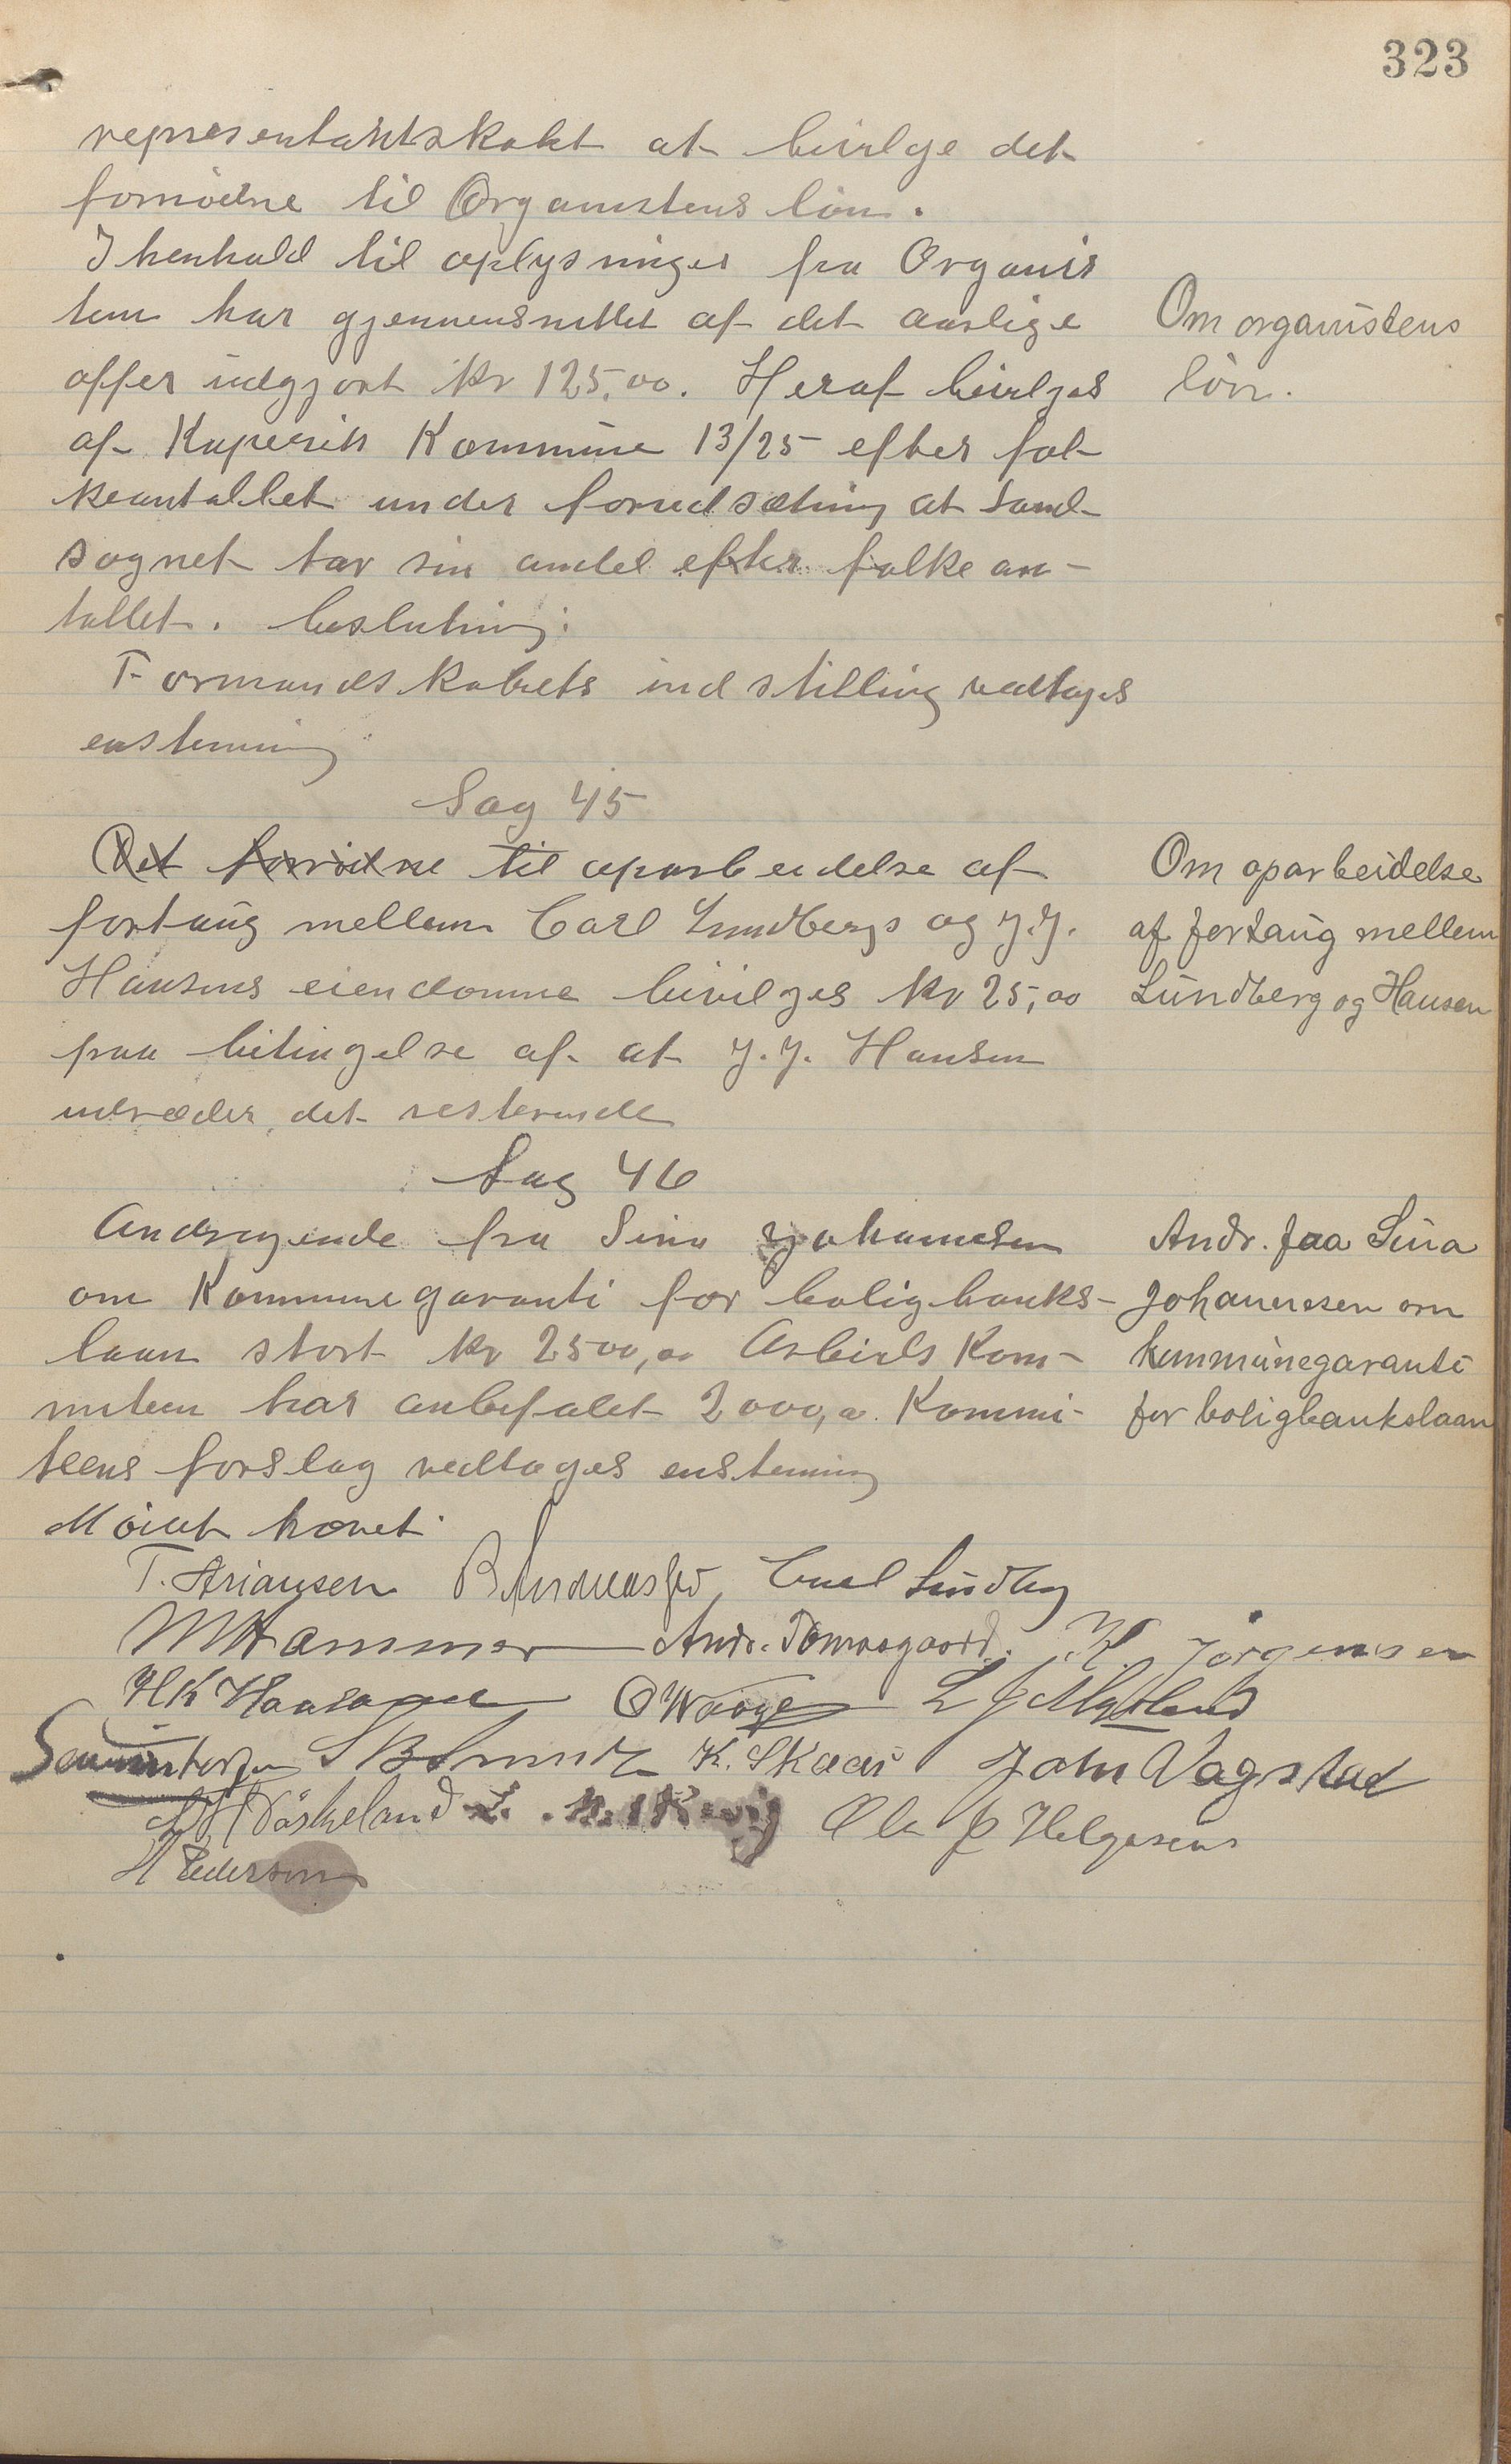 323
representantskabt at bevilge det
fornødne til Organistens løn.
I henhold til oplysninger fra Organis
ten har gjennensnittet af det aarlige
offer udgjort Kr 125,00. Heraf bevilges
af Kopervik Kommune 13/25 efter fol-
keantallet under forudsætning at Land-
sognet tar sin andel efter folkean-
tallet. beslutning:
Formandskabets indstilling vedtages
enstemmig
Om organistens
løn.
Sag 45
Det fornødne til oparbeidelse af
fortaug mellem Carl Lundbergs og J.J.
Hansens eiendomme bevilges Kr 25,00
paa betingelse af at J.J. Hansen
udreder det resterende
Om oparbeidelse
af fortaug mellem
Lundberg og Hansen
Sag 46
Andragende fra Sina Johannesen
om Kommunegaranti for boligbanks-
laan stort Kr 2500,00 Arbeids Kom-
miteen har anbefalet 2000,00. Kommi-
teens forslag vedtages enstemmig
Møtet hævet.
Andr. fra Sina
Johannesen om
kommunegaranti
for boligbankslaan
T. Ariansen B Andreassen Carl Lundberg
M Hammer Andr. K. Jørgensen
HK O Waage L J Mydland
K. Skaar John Vagstad
Ola J Helgesen
H Pedersen